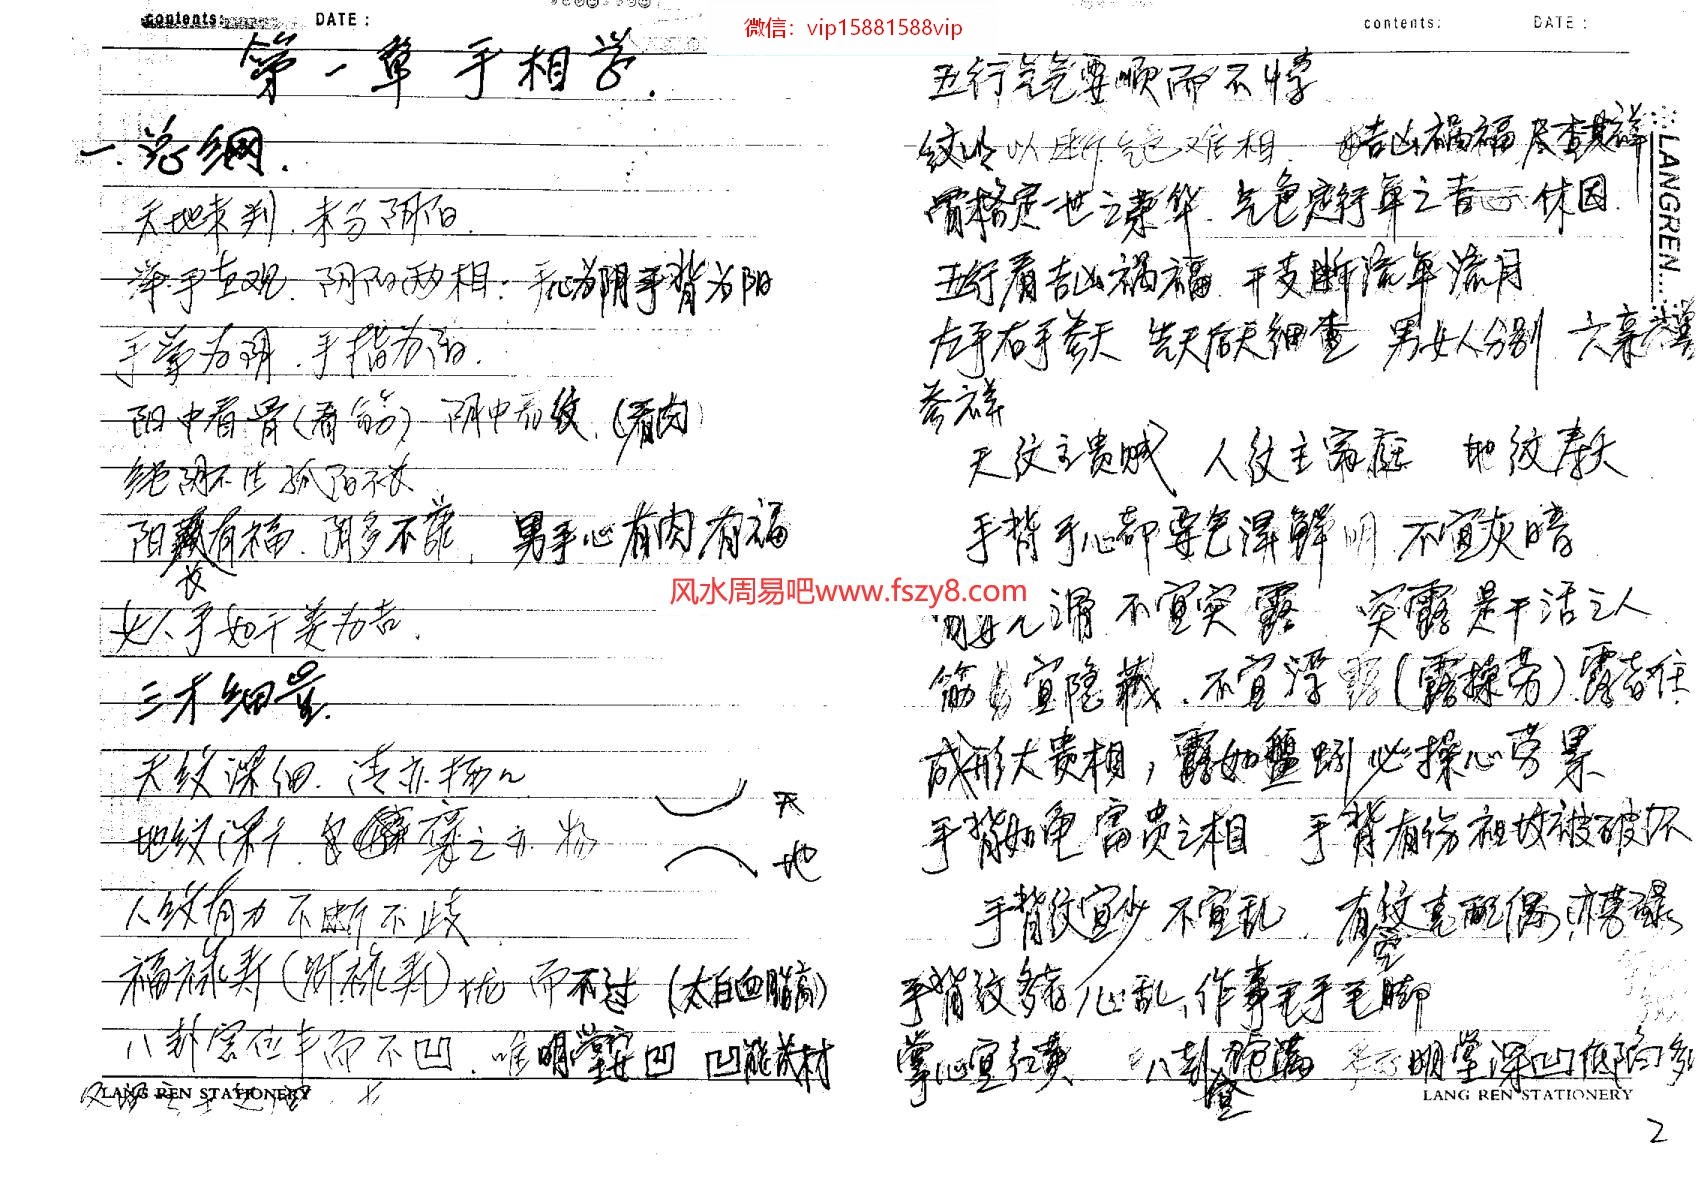 contents: DATE:
微信：vip15881588vip
第一章 手相学.
一.总纲.
天地未判.未分阴阳.
举手直观.阴阳两相:手心为阴手背为阳
手掌为阴.手指为阳.
阳中看骨(看筋) 阴中看纹.(看肉)
绝阴不生孤阳不长
阳藏有福.阴多不 男手心有肉有福
长
女人手如干姜为吉.
三才细
天纹深细.清
天
地纹深
地
人纹有力不断不歧
福禄寿(财禄寿) 而不过(太白血脂高)
八卦宫位丰而不凹.唯明堂要凹 凹能成材
LANG REN STATIONERY
contents: DATE:
五行气色要顺而不悖
纹 以断 难相. 吉凶祸福尽查其祥
骨格定一世之荣华.气色定行年之 休囚.
五行看吉凶祸福.干支断流年流月
左手右手参天 先天后天细查 男女人分别 六亲
参祥
LANGREN...
天纹主贵贱 人纹主家庭 地纹寿夭
手背手心都要气泽鲜明.不宜灰暗
风水周易吧www.fszy8.com
滑不宜突露 突露是干活之人
筋 宜隐藏.不宜浮露(露操劳).露者
成形大贵相,露如盘蚓必操心劳累
手背如龟富贵之相 手背有伤祖坟被破坏
手背纹宜少不宜乱 有纹克配偶,
手背纹多者心乱,作事毛手毛脚
掌心宜红黄 八卦 满 明堂深凹低陷
宜
LANG REN STATIONERY
2